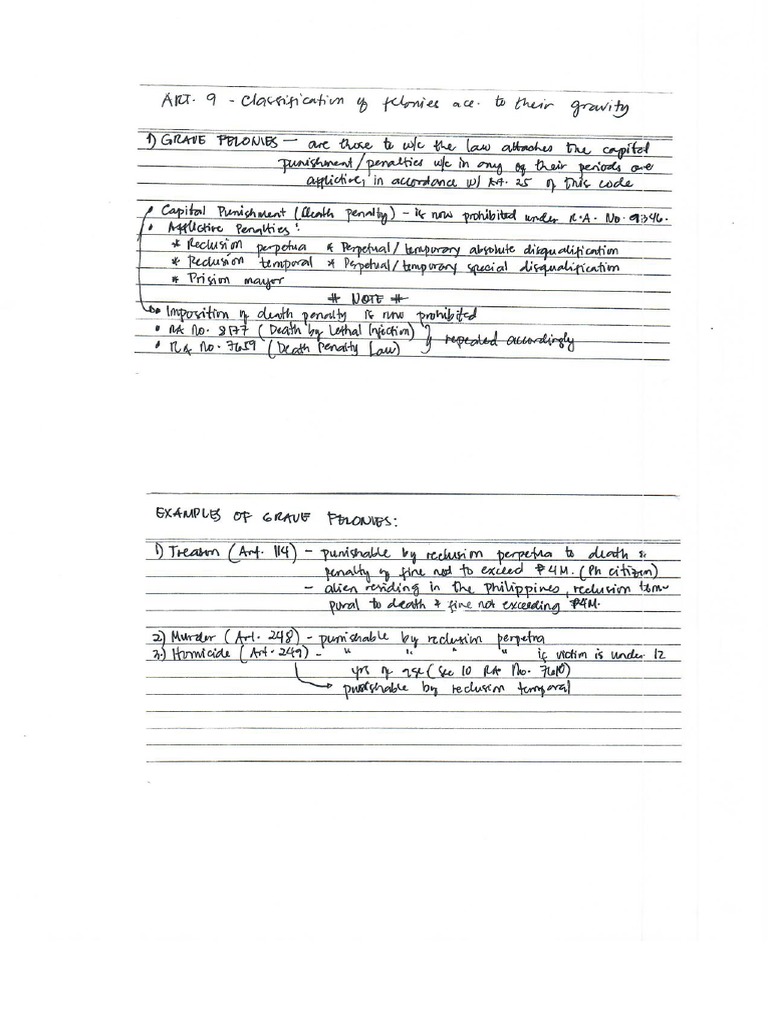 ART. 9 - Classification of felonies acc. to their gravity
1) GRAVE FELONIES — are those to w/c the law attaches the capital
punishment/penalties w/c in any of their periods are
afflictive, in accordance w/ Art. 25 of this code
• Capital Punishment (Death penalty) - is now prohibited under R.A. No. 9346.
• Afflictive Penalties:
* Reclusion perpetua * Perpetual/temporary absolute disqualification
* Reclusion temporal * Perpetual/temporary special disqualification
* Prision mayor
# NOTE #
• Imposition of death penalty is now prohibited
• RA No. 8177 (Death by Lethal Injection) } repealed accordingly
• RA No. 7659 (Death Penalty Law)
EXAMPLES OF GRAVE FELONIES:
1) Treason (Art. 114) - punishable by reclusion perpetua to death &
penalty of fine not to exceed ₱4M. (Ph citizen)
- alien residing in the Philippines, reclusion tem-
pural to death & fine not exceeding ₱4M.
2) Murder (Art. 248) - punishable by reclusion perpetua
3.) Homicide (Art. 249) - " " " " if victim is under 12
yrs of age (Sec 10 RA No. 7610)
punishable by reclusion temporal